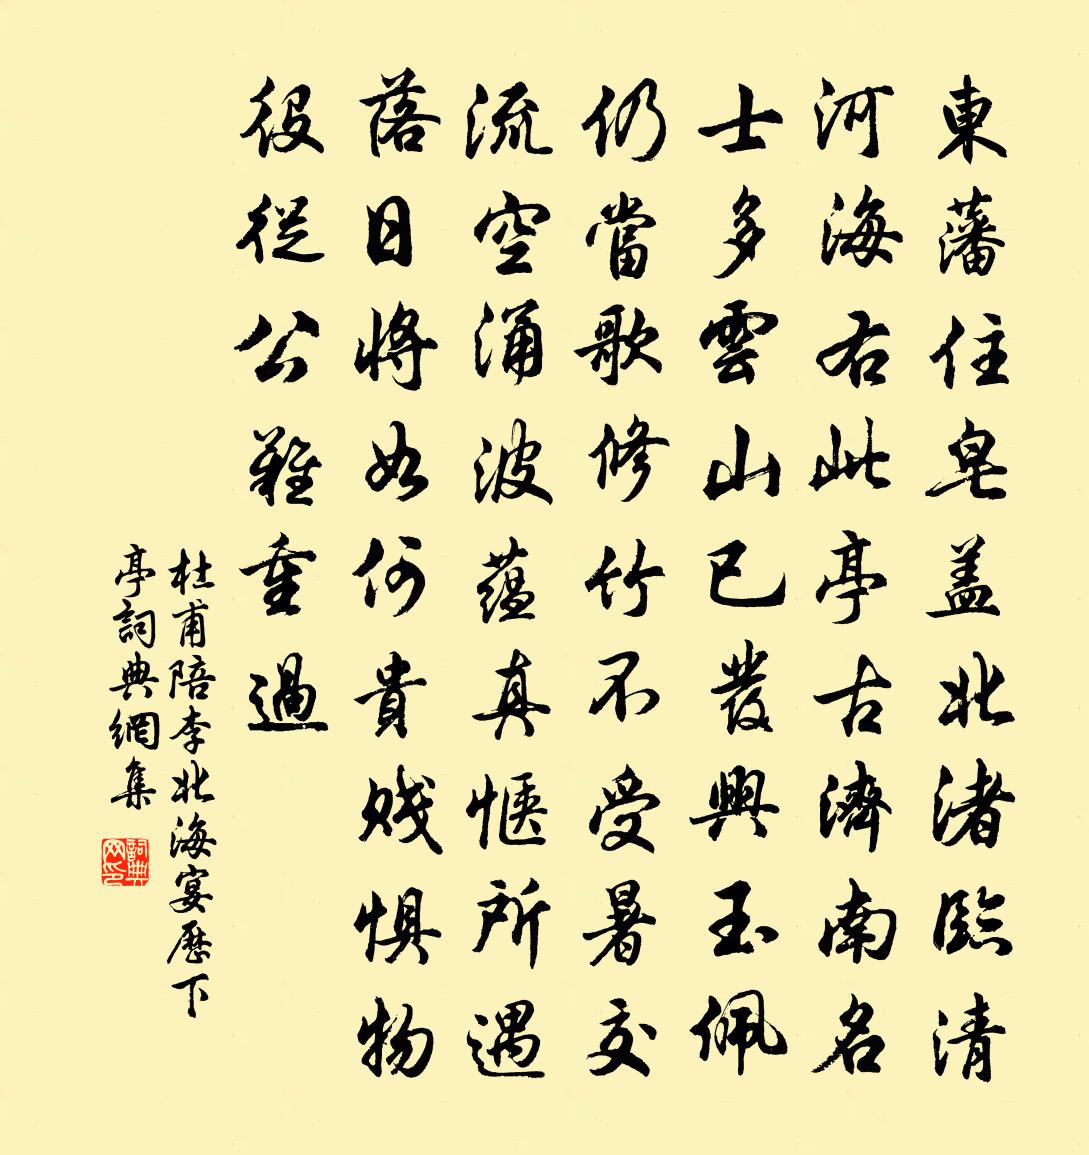 東藩住皂盖北渚臨清
河海右此亭古濟南名
士多雲山已發興玉佩
仍當歌修竹不受暑交
流空涌波蘊真愜所遇
落日將如何貴賤惧物
役從公難重過
杜甫陪李北海宴歷下
亭詞典網集
詞典
网印